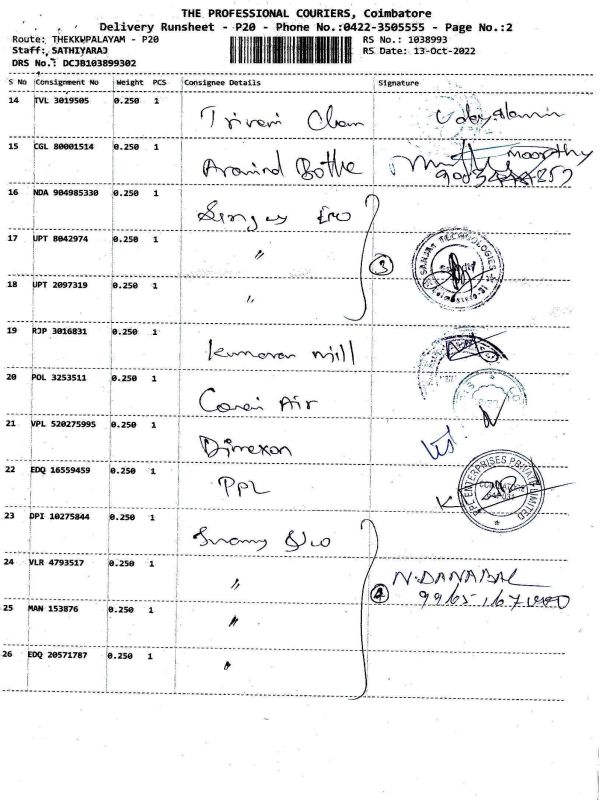 THE PROFESSIONAL COURIERS, Coimbatore
Delivery Runsheet - P20 - Phone No.:0422-3505555 - Page No.:2
Route: THEKKUPALAYAM - P20 RS No.: 1038993
Staff: SATHIYARAJ RS Date: 13-Oct-2022
DRS No.: DCJB103899302
S No Consignment No Weight PCS Consignee Details Signature
14 TVL 3019505 0.250 1
15 CGL 80001514 0.250 1 Aravind Bothe moorthy
16 NDA 904985330 0.250 1
17 UPT 8042974 0.250 1 〃 3 SANJAY TECHNOLOGIES
18 UPT 2097319 0.250 1 〃
19 RJP 3016831 0.250 1 Kumaran mill
20 POL 3253511 0.250 1 Air
21 VPL 520275995 0.250 1 Dimexon
22 EDQ 16559459 0.250 1 PPL PPL ENTERPRISES PRIVATE LIMITED
23 DPI 10275844 0.250 1
24 VLR 4793517 0.250 1 〃 4 N.DANABAL
25 MAN 153876 0.250 1 〃
26 EDQ 20571787 0.250 1 〃